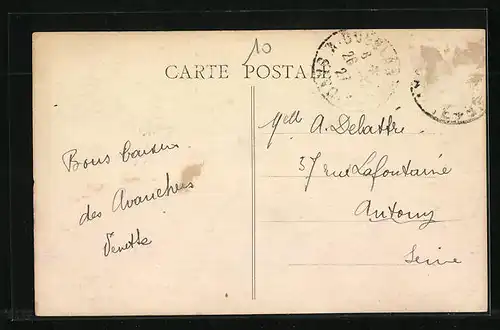 10
CARTE POSTALE
Bons baisers
des Avanchers
Venette
Melle A. Delattre
37 rue Lafontaine
Antony
Seine